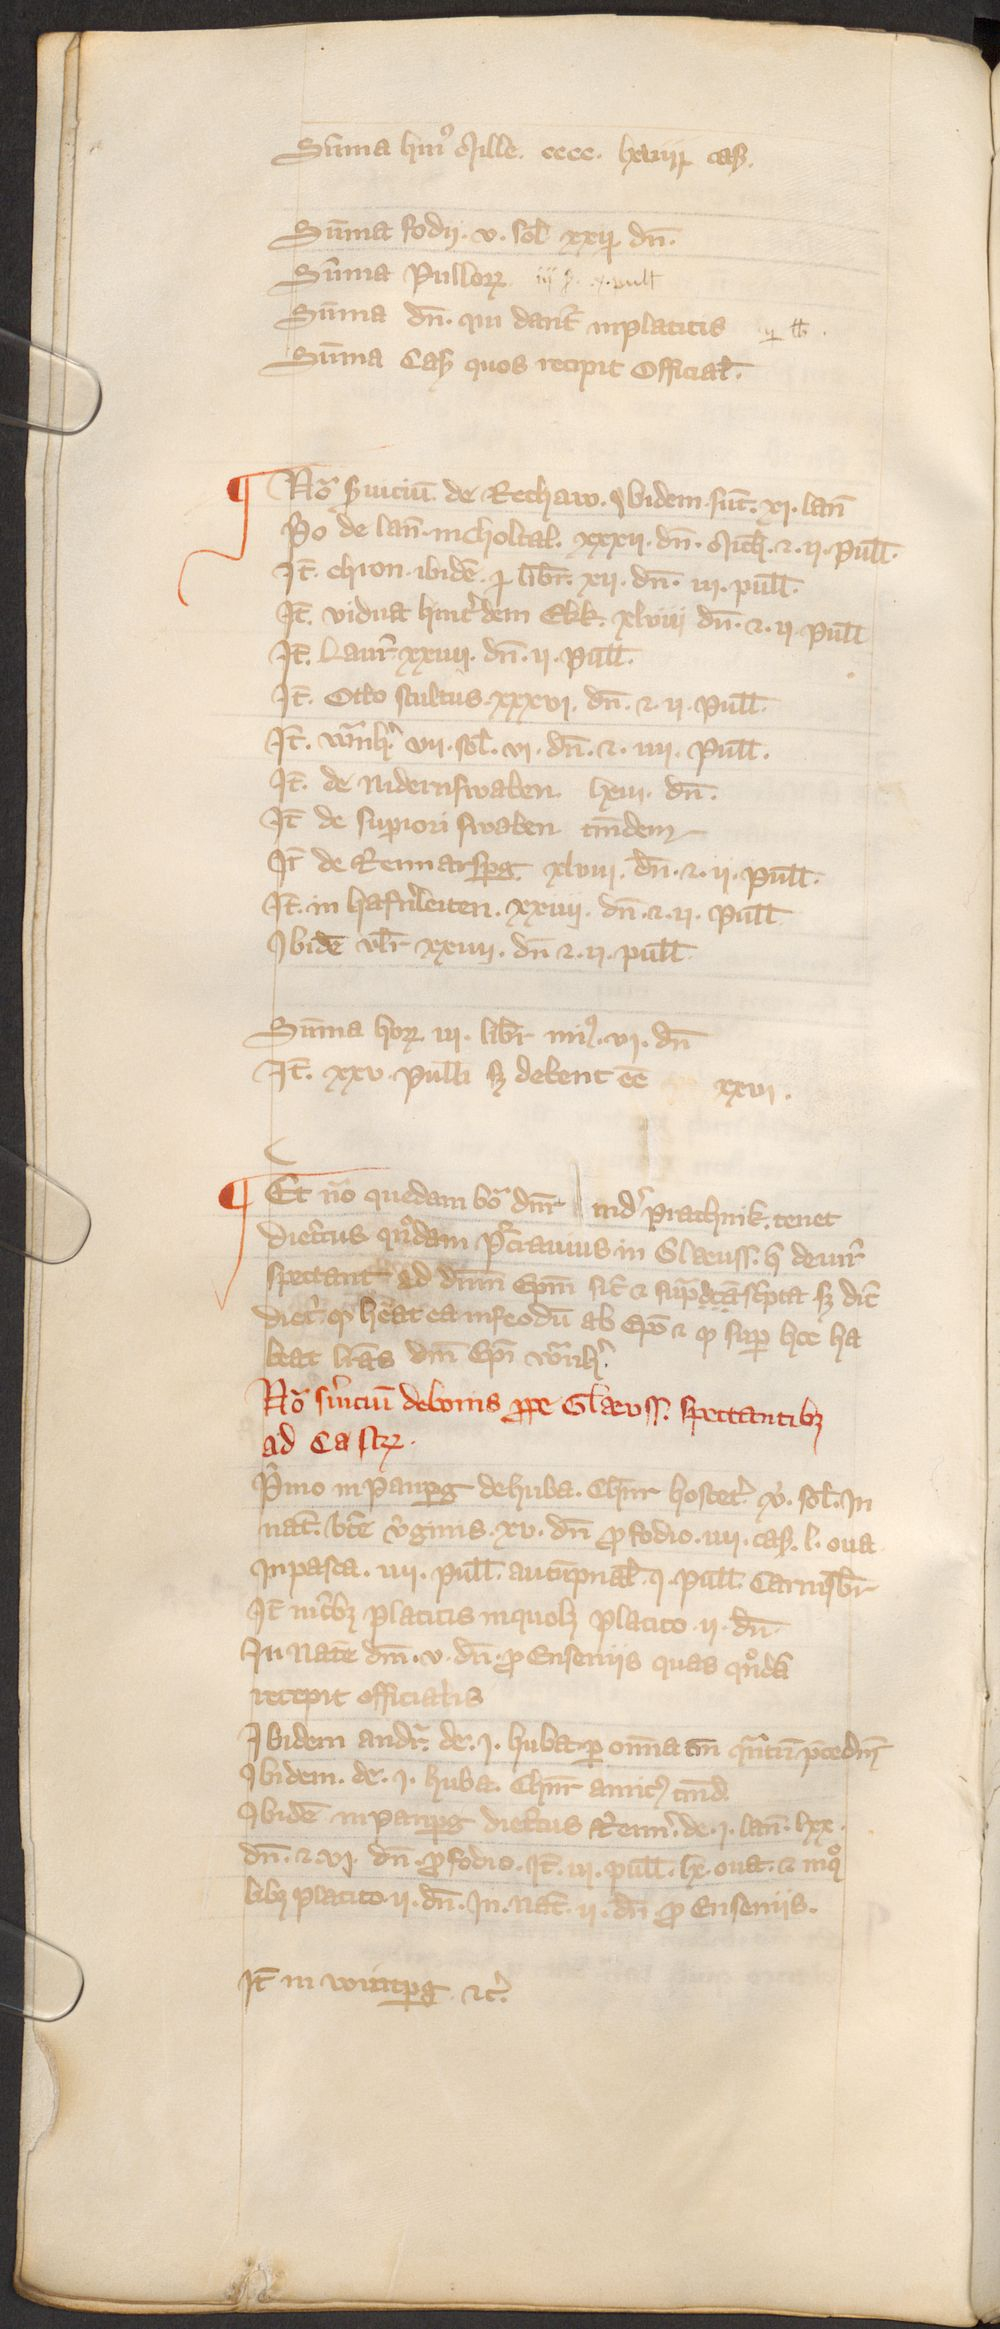 Sum̄a huiꝰ Mille. cccc. lxviiij cas̄.
Sum̄a fodii. v. sol̄ xxij dn̄.
Sum̄a Pulloꝝ iij ß. x. pull̄
Sum̄a dn̄. qui dant̄ in placitis
Sum̄a Cas̄ quos recipit Official̄.
¶ No̅ Seruiciū. de Rechaw. Ibidem sūt. xj. lan̄
P̊o de lan̄. in choltal. xxxii. dn̄. Mich̄. ⁊. ij. Pull̄.
Jt̄. chron. ibidē. ꝑ libr̄. xii. dn̄. iij. pull̄.
Jt̄. vidua hint̉dem Ekk. xlviij dn̄. ⁊. ij. Pull̄
Jt̄. Laur̄ xxiiij. dn̄. ij. Pull̄.
Jt̄. Otto stultus. xxxvj. dn̄. ⁊. ij. Pull̄.
Jt̄. Wernh̉. vij. sol̄. vj. dn̄. ⁊. iiij. Pull̄.
Jt̄. de Nidernswaben. lxiij. dn̄.
Jt̄ de superiori swaben tm̄dem
Jt̄ de Rennarsꝑg xlviij. dn̄. ⁊. ij. Pull̄.
Jt̄. in hafn̉leiten. xxiiij. dn̄. ⁊. ij. Pull̄
Ibidē vlr̄ xxiiij. dn̄ ⁊. ij. pull̄
Sum̄a hoꝝ iij. libr̄ minꝰ. vj. dn̄
Jt̄. xxv. Pulli sꝫ debent ēē xxvj.
¶ Et no̅ quedam bo̅ dn̄r ind̉ Prachnik. tenet
Diet̉cus quͦdam p̉crauius in Glaeuss. q̄ de iur̉
spectant ad dn̄m Ep̄m sic̄ ⁊ sup̅dc̄a sc̉pta sꝫ dic̄
diet̉. ꝙ hēat ea in feodū ab Ep̄o ⁊ ꝙ suꝑ hoc ha
beat lr̄as dn̄i Ep̄i Wernh̉.
No̅ s̉uiciū de bonis ꝓpe Glaeuss. spectantibꝫ
ad Castꝝ.
P̉mo in Panꝑg de huba. Chunr̄ hostet̉. v. sol̄. In
nat̄. btē v̉ginis. xv. dn̄ ꝓ fodio. iiij. cas̄. l. oua
In pasca. iiij. Pull̄. autūpnal̄ j. pull̄. Carnisbr̄
Jt̄ in tribꝫ placitis in quolꝫ placito. ij. dn̄.
In Natē dn̄i. v. dn̄. ꝓ Enseniis quas quͦdā
recepit officialis
Ibidem andr̄. de. j. huba. ꝑ om̄ia tm̄ qͣntū p̄cedens
Ibidem. de. j. huba. Chunr̄ amicꝰ tm̄d.
Ibidē in panꝑg diet̉cus Renn̉. de. j. lan̄. lxx.
dn̄. ⁊. vj. dn̄. ꝓ fodio. Jt̄. iij. pull̄. lx. oua. ⁊ in qͦ
libꝫ placito ij. dn̄. In. Nat̄. ij. dn̄ ꝓ Enseniis.
Jt̄ in voitꝑg ⁊c̉.